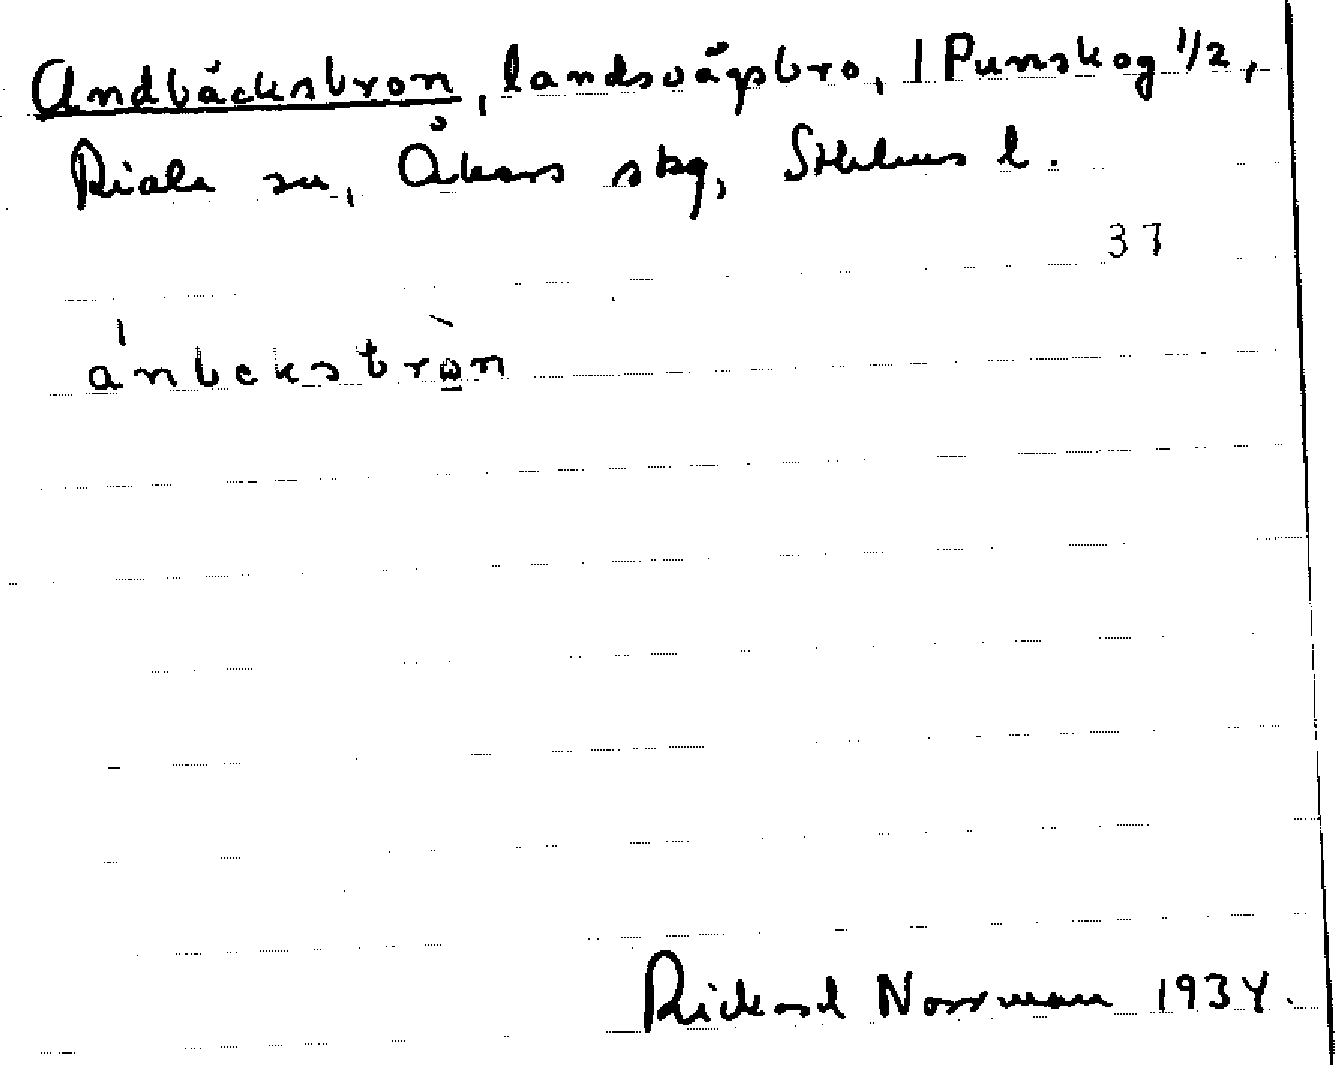 Andbäcksbron, landsvägsbro, 1 Punskog 1/2,
Riala sn, Åkers skg, Sthlms l.
37
a'nbeksbròn
Rickard Norrman 1934.